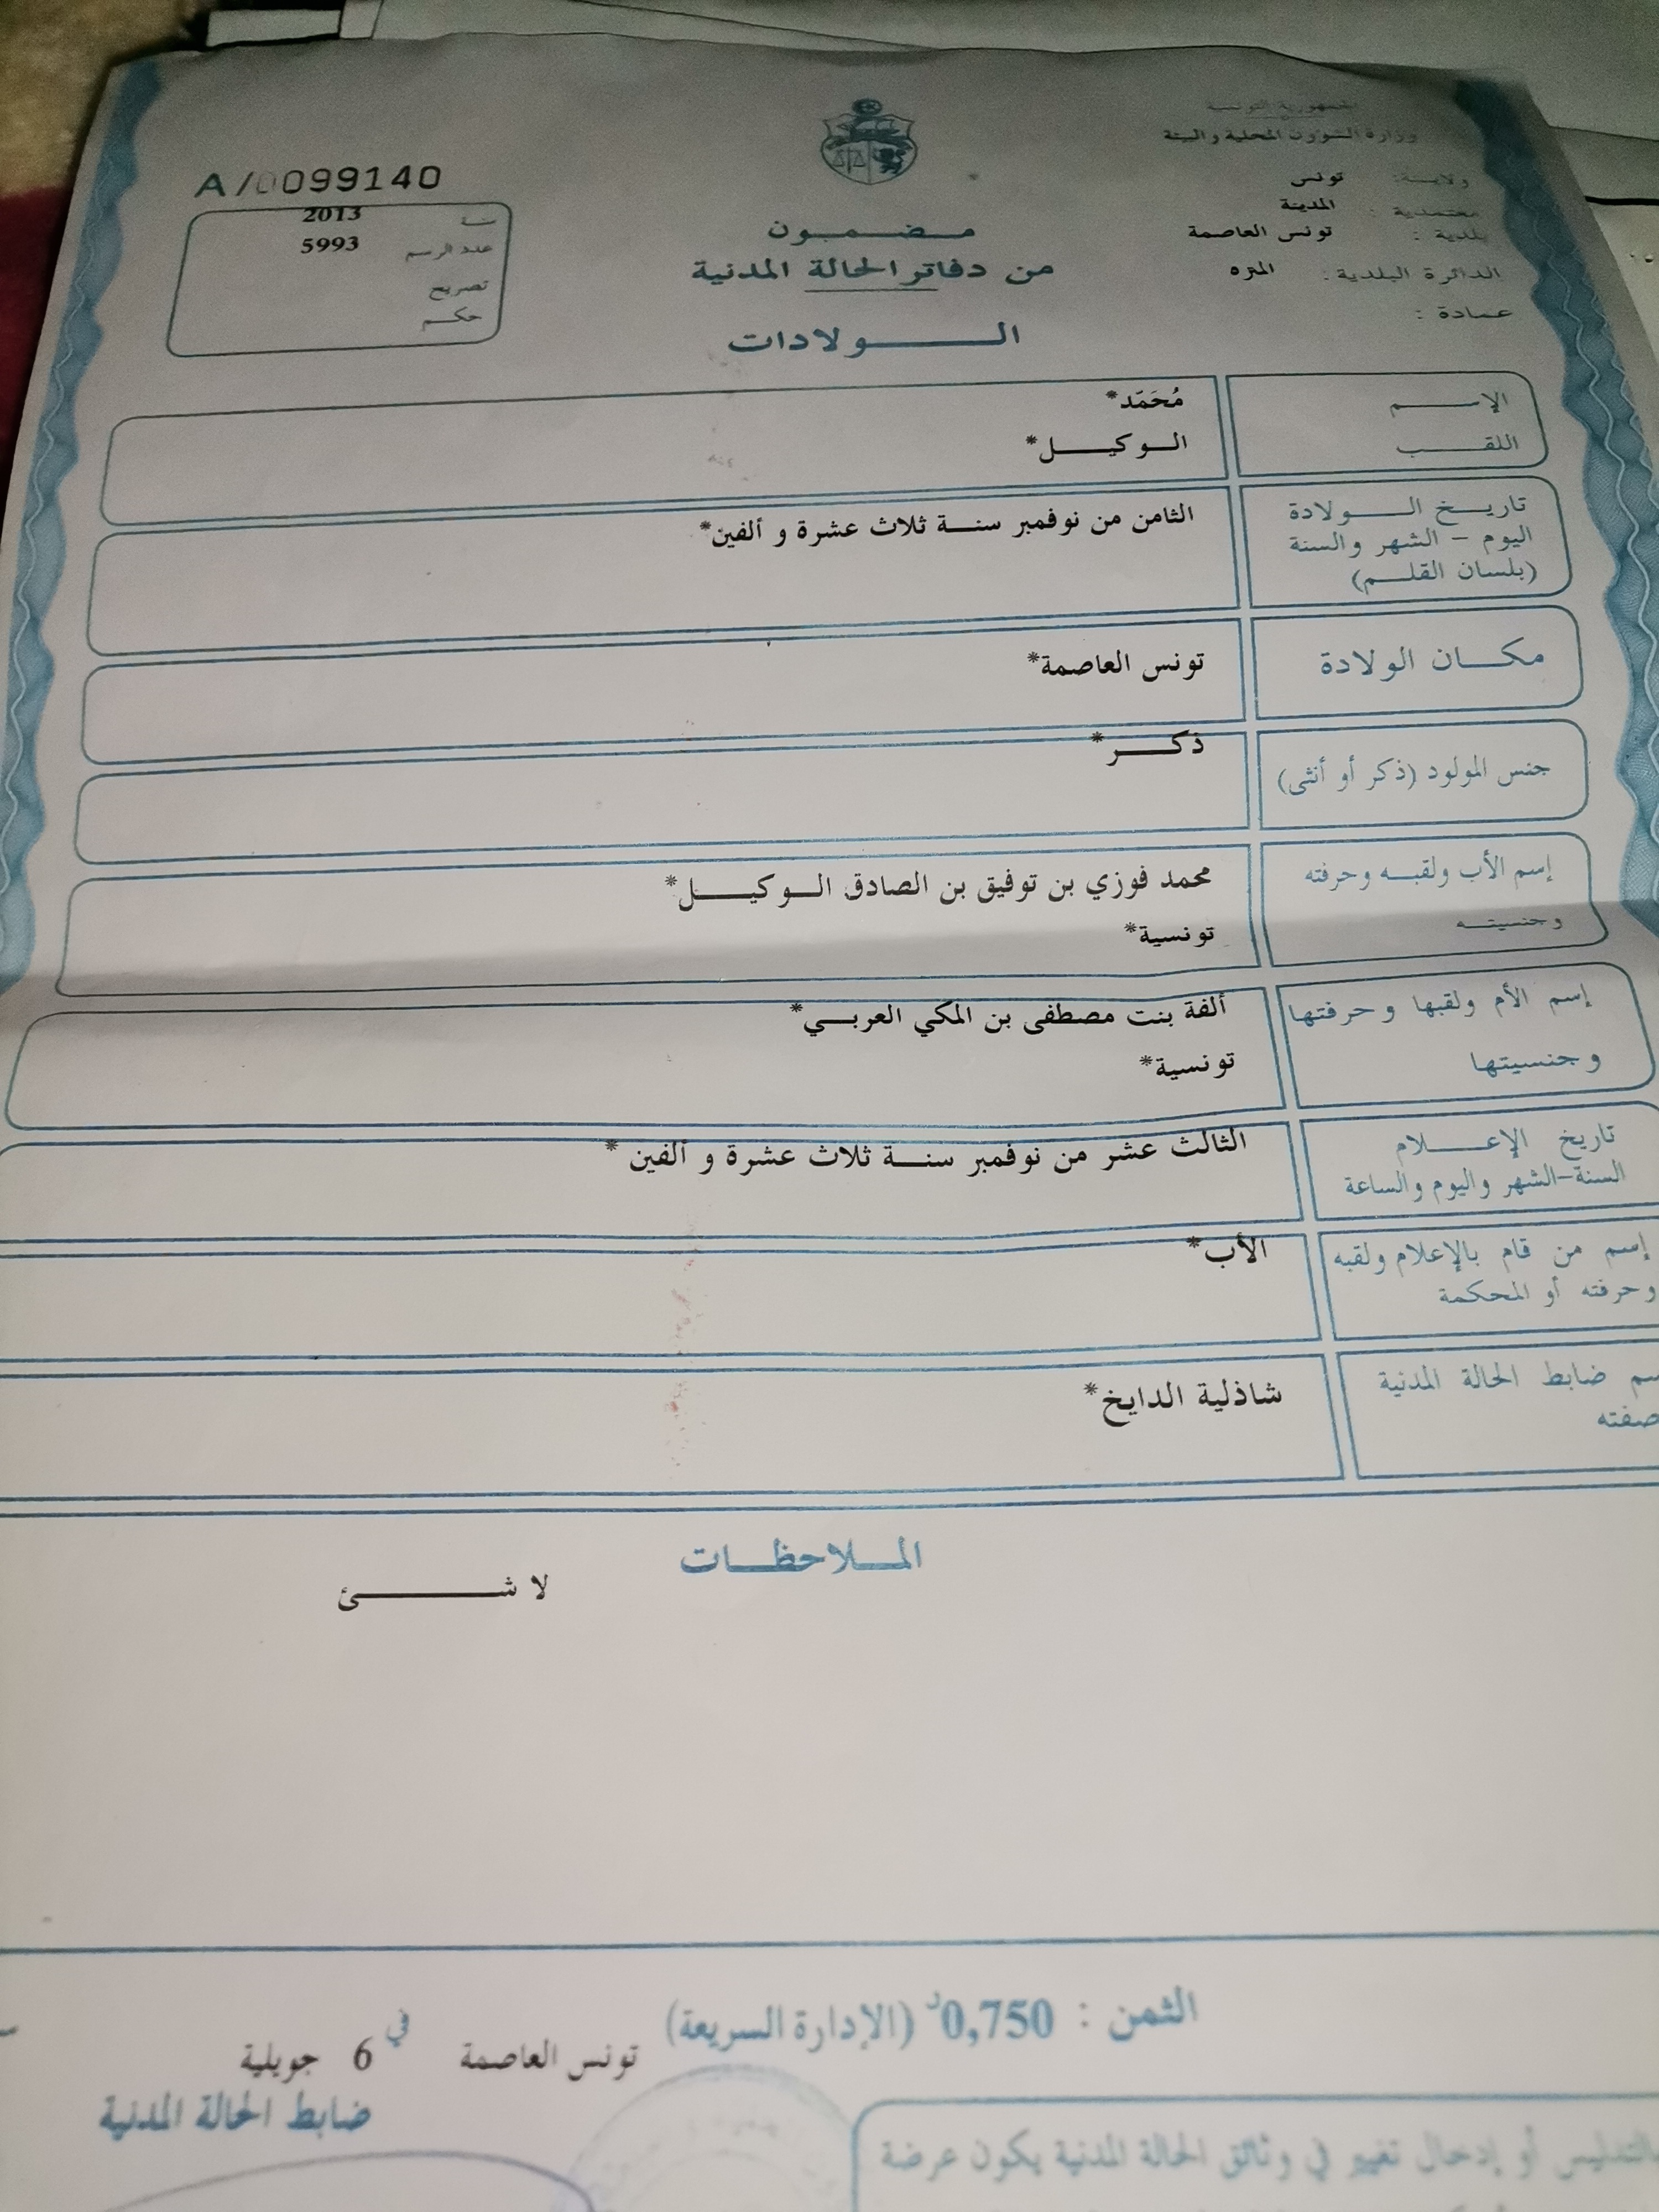 الجمهورية التونسية
وزارة الشؤون المحلية والبيئة
ولاية: تونس
معتمدية : المدينة
بلدية : تونس العاصمة
الدائرة البلدية : المنزه
عمادة :
A/0099140
سنة 2013
عدد الرسم 5993
تصريح
حكم
مضمون
من دفاتر الحالة المدنية
الولادات
الإسم مُحَمّد*
اللقب الوكيل*
تاريخ الولادة
اليوم - الشهر والسنة
(بلسان القلم)
الثامن من نوفمبر سنة ثلاث عشرة و ألفين*
مكان الولادة تونس العاصمة*
جنس المولود (ذكر أو أنثى) ذكر*
إسم الأب ولقبه وحرفته محمد فوزي بن توفيق بن الصادق الوكيل*
وجنسيته تونسية*
إسم الأم ولقبها وحرفتها ألفة بنت مصطفى بن المكي العربي*
وجنسيتها تونسية*
تاريخ الإعلام
السنة-الشهر واليوم والساعة
الثالث عشر من نوفمبر سنة ثلاث عشرة و ألفين *
إسم من قام بالإعلام ولقبه
وحرفته أو المحكمة
الأب*
سم ضابط الحالة المدنية
صفته
شاذلية الدايخ*
الملاحظات
لا شئ
الثمن : 0,750د (الإدارة السريعة)
تونس العاصمة في 6 جويلية
ضابط الحالة المدنية
بالتدليس أو إدخال تغيير في وثائق الحالة المدنية يكون عرضة